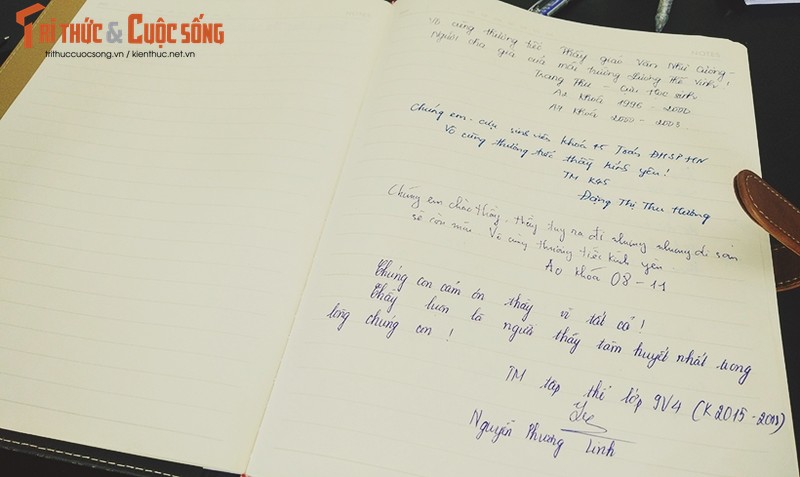 TRI THỨC & CUỘC SỐNG
trithuccuocsong.vn / kienthuc.net.vn
NOTES
Vô cùng thương tiếc Thầy giáo Văn Như Cương -
người cha già của mái trường Lương Thế Vinh!
Trang Thư - Cựu học sinh
A2 Khoá 1996 - 2000
A4 Khoá 2000 - 2003
Chúng em - cựu sinh viên khoá 45 Toán ĐHSPHN
Vô cùng thương tiếc thầy kính yêu!
TM K45
Đặng Thị Thu Hương
Chúng em chào thầy, thầy tuy ra đi nhưng những di sản
sẽ còn mãi. Vô cùng thương tiếc kính yêu.
A0 khóa 08 - 11
Chúng con cảm ơn thầy vì tất cả!
Thầy luôn là người thầy tâm huyết nhất trong
lòng chúng con!
TM tập thể lớp 9V4 (K2015 -
Nguyễn Phương Linh